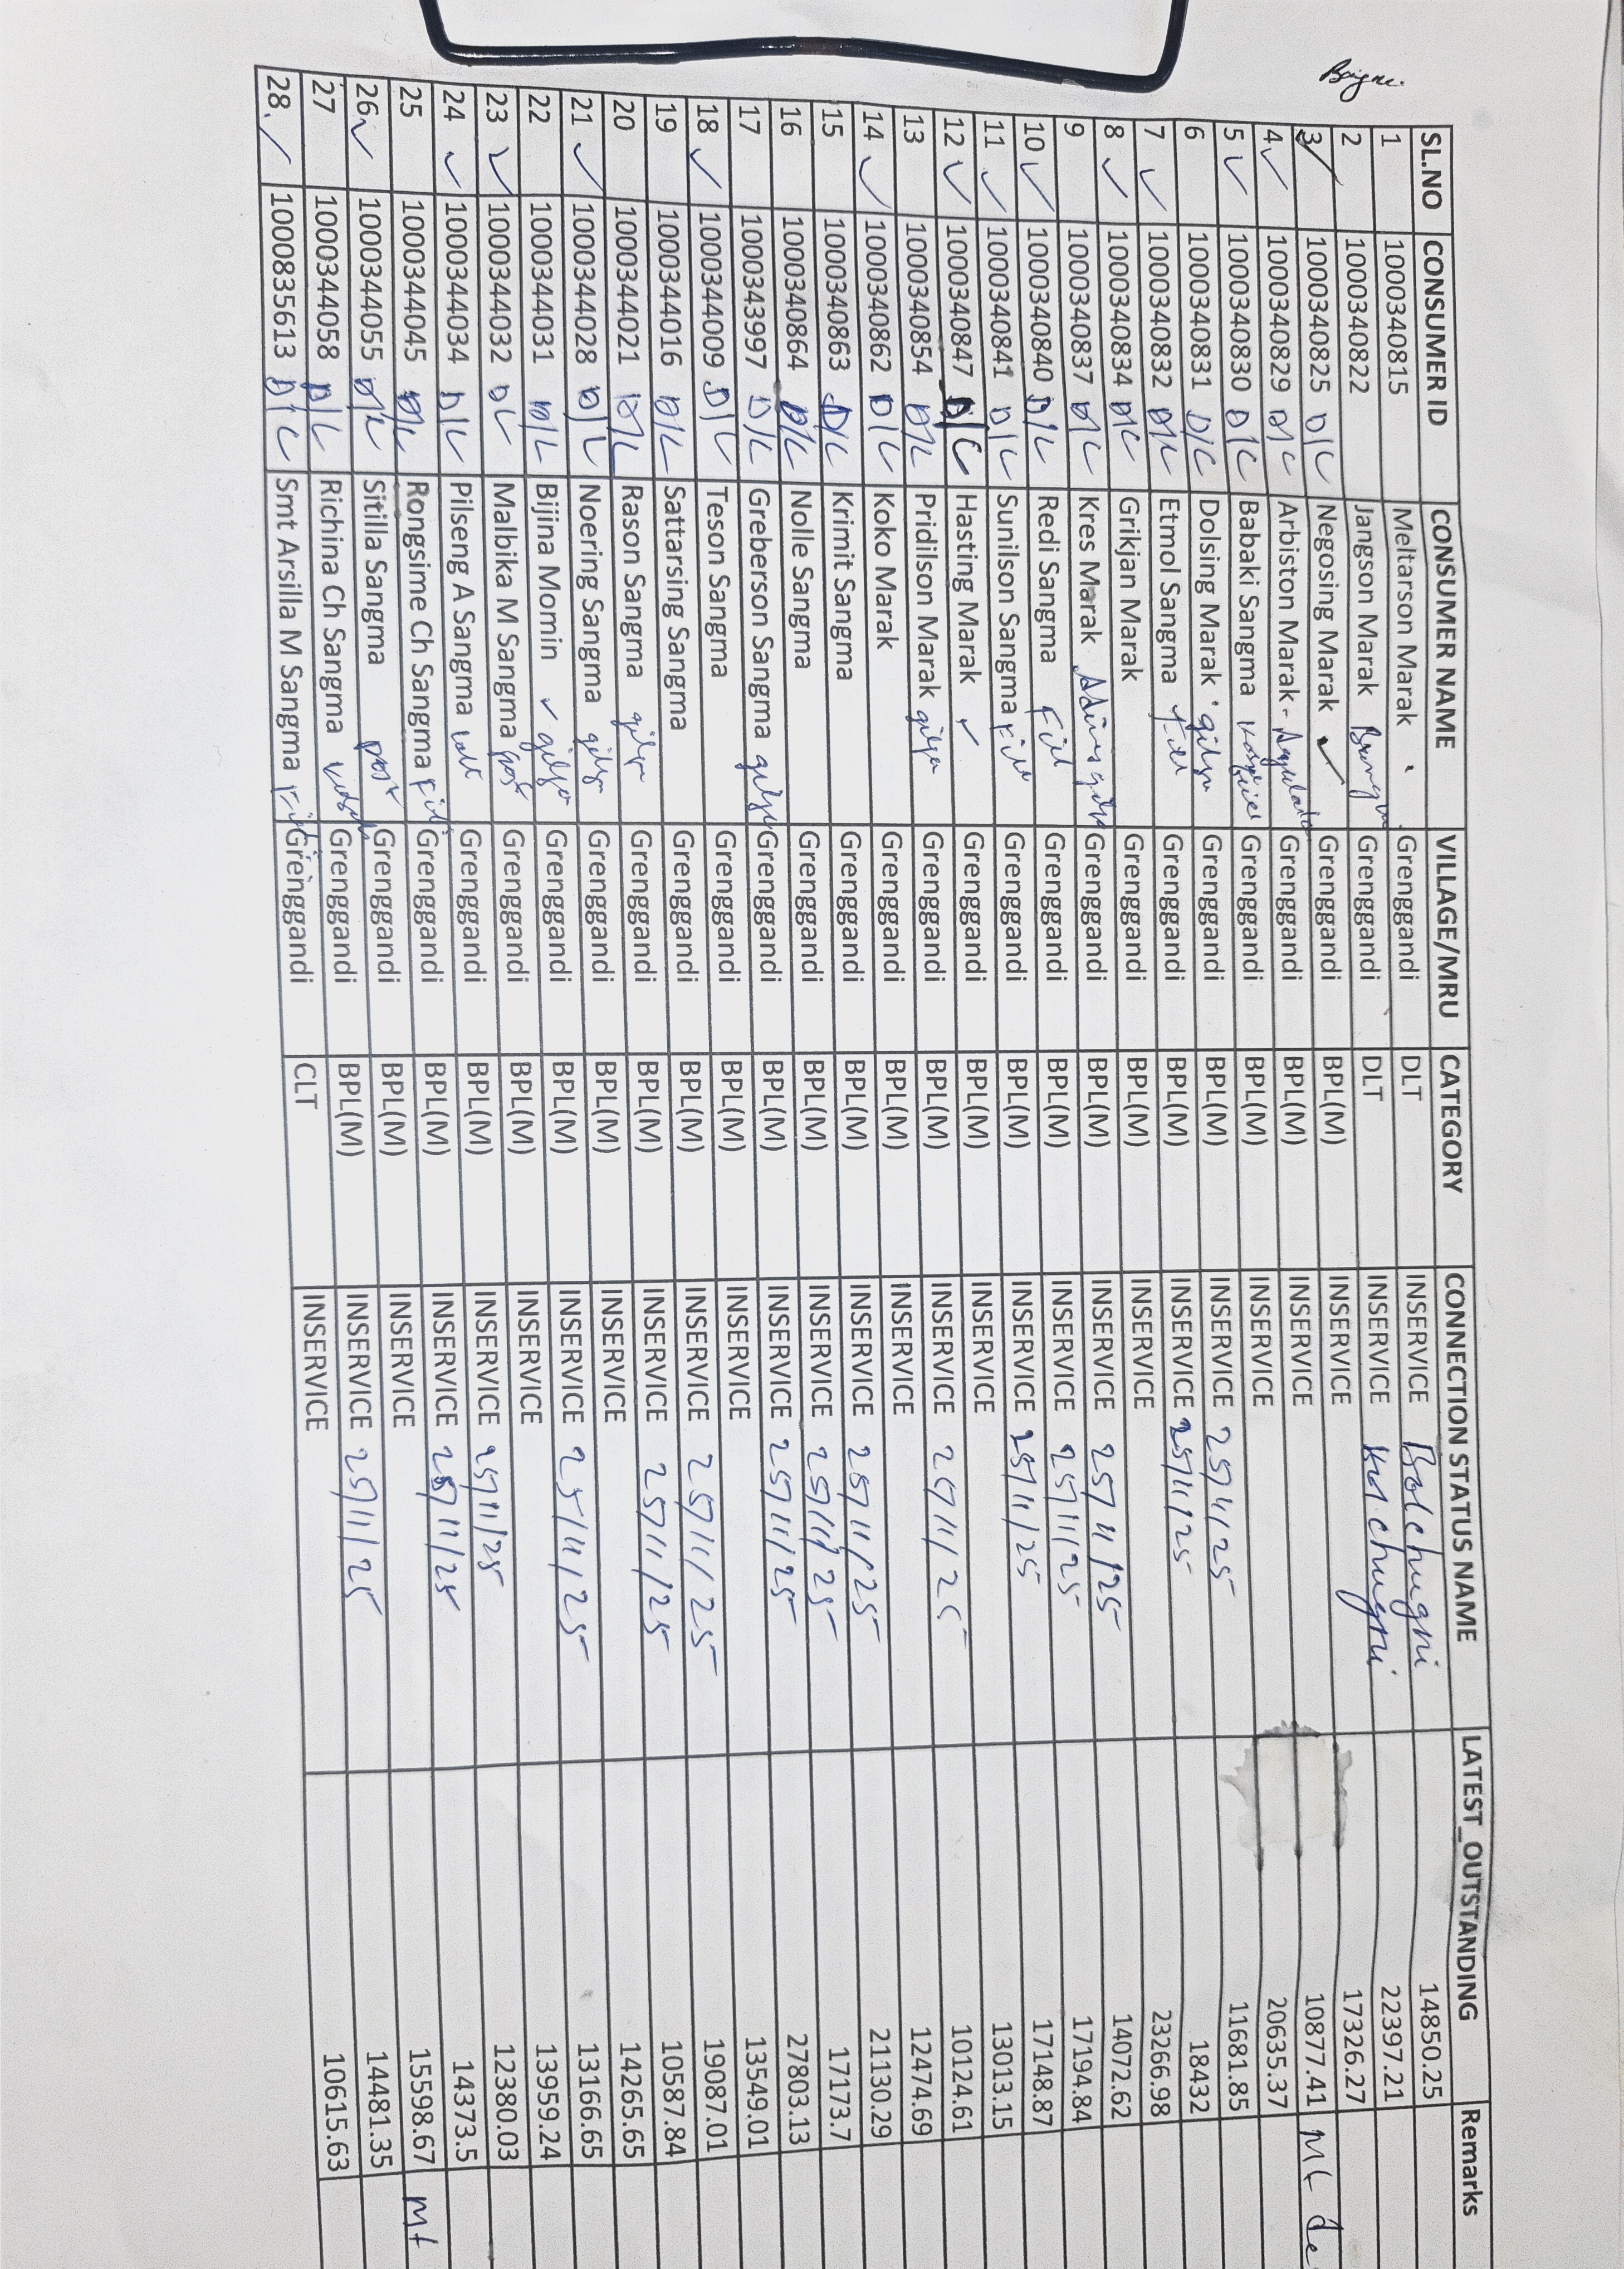 Baigni
SL.NO CONSUMER ID CONSUMER NAME VILLAGE/MRU CATEGORY CONNECTION STATUS NAME LATEST_OUTSTANDING Remarks
1 1000340815 Meltarson Marak Grenggandi DLT INSERVICE Bolchugni 14850.25
2 1000340822 Jangson Marak Grenggandi DLT INSERVICE Bolchugni 22397.21
3 ✓ 1000340825 D/C Negosing Marak ✓ Grenggandi BPL(M) INSERVICE 17326.27
4 ✓ 1000340829 D/C Arbiston Marak - Grenggandi BPL(M) INSERVICE 10877.41 Mt de
5 ✓ 1000340830 D/C Babaki Sangma Grenggandi BPL(M) INSERVICE 20635.37
6 1000340831 D/C Dolsing Marak gilga Grenggandi BPL(M) INSERVICE 25/11/25 11681.85
7 ✓ 1000340832 D/C Etmol Sangma Fiel Grenggandi BPL(M) INSERVICE 25/11/25 18432
8 ✓ 1000340834 D/C Grikjan Marak Grenggandi BPL(M) INSERVICE 23266.98
9 1000340837 D/C Kres Marak gilga Grenggandi BPL(M) INSERVICE 25/11/25 14072.62
10 ✓ 1000340840 D/C Redi Sangma Fiel Grenggandi BPL(M) INSERVICE 25/11/25 17194.84
11 ✓ 1000340841 D/C Sunilson Sangma Fiel Grenggandi BPL(M) INSERVICE 25/11/25 17148.87
12 ✓ 1000340847 D/C Hasting Marak ✓ Grenggandi BPL(M) INSERVICE 13013.15
13 1000340854 D/C Pridilson Marak gilga Grenggandi BPL(M) INSERVICE 25/11/25 10124.61
14 ✓ 1000340862 D/C Koko Marak Grenggandi BPL(M) INSERVICE 12474.69
15 1000340863 D/C Krimit Sangma Grenggandi BPL(M) INSERVICE 25/11/25 21130.29
16 1000340864 D/C Nolle Sangma Grenggandi BPL(M) INSERVICE 25/11/25 17173.7
17 1000343997 D/C Greberson Sangma gilga Grenggandi BPL(M) INSERVICE 25/11/25 27803.13
18 ✓ 1000344009 D/C Teson Sangma Grenggandi BPL(M) INSERVICE 13549.01
19 1000344016 D/C Sattarsing Sangma Grenggandi BPL(M) INSERVICE 25/11/25 19087.01
20 1000344021 D/C Rason Sangma gilga Grenggandi BPL(M) INSERVICE 25/11/25 10587.84
21 ✓ 1000344028 D/C Noering Sangma gilga Grenggandi BPL(M) INSERVICE 14265.65
22 1000344031 D/C Bijina Momin ✓ gilga Grenggandi BPL(M) INSERVICE 25/11/25 13166.65
23 ✓ 1000344032 D/C Malbika M Sangma Grenggandi BPL(M) INSERVICE 13959.24
24 ✓ 1000344034 D/C Pilseng A Sangma Grenggandi BPL(M) INSERVICE 25/11/25 12380.03
25 1000344045 D/C Rongsime Ch Sangma Fiel Grenggandi BPL(M) INSERVICE 25/11/25 14373.5
26 ✓ 1000344055 D/C Sitilla Sangma Grenggandi BPL(M) INSERVICE 15598.67 Mt
27 1000344058 D/C Richina Ch Sangma Grenggandi BPL(M) INSERVICE 25/11/25 14481.35
28 ✓ 1000835613 D/C Smt Arsilla M Sangma Grenggandi CLT INSERVICE 10615.63